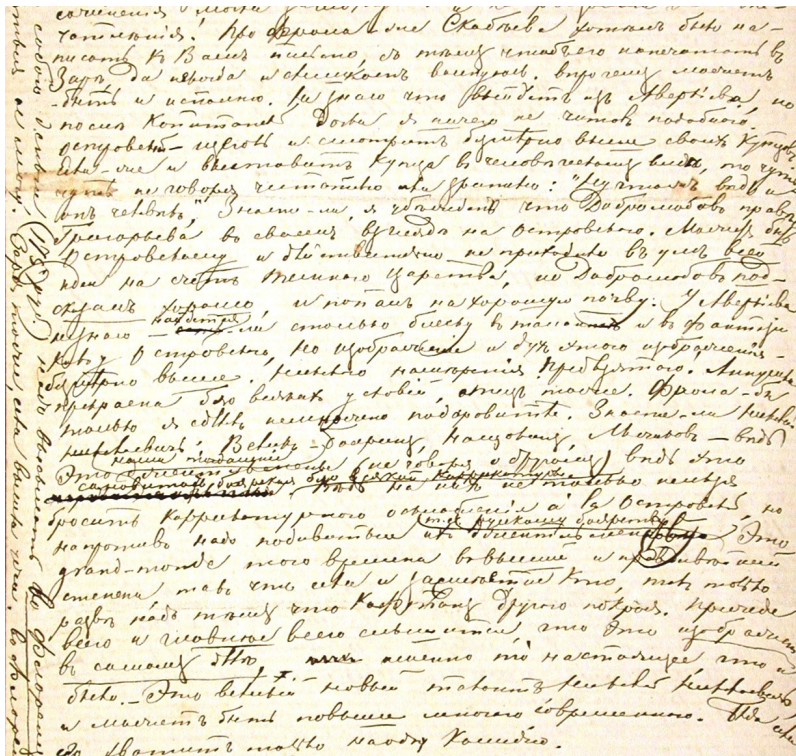 чатлѣнія. Про Фрола-же Скабѣева хотѣлъ было на-
писать къ Вамъ письмо, съ тѣмъ чтобъ его напечатать въ
Зарѣ, да некогда и слишкомъ волнуюсь. впрочемъ можетъ
-быть и исполню. Не знаю что выйдетъ изъ Аверкіева, но
послѣ Капитанск. Дочки я ничего не читалъ подобнаго.
Островскій – щеголь и смотритъ безмѣрно выше своихъ купцовъ.
Если-же и выставитъ купца въ человѣческомъ видѣ, то чуть
чуть не говоря читателю или зрителю: „Ну что-жъ, вѣдь и
онъ человѣкъ". Знаете-ли, я убѣжденъ что Добролюбовъ правѣе
Григорьева въ своемъ взглядѣ на Островскаго. Можетъ быть
Островскому и дѣйствительно не приходило въ умъ всей
идеи на счетъ Темнаго Царства, но Добролюбовъ под-
сказалъ хорошо, и попалъ на хорошую почву. У Аверкіева
не знаю – найдется-ли столько блеску въ талантѣ и въ фантазіи
какъ у Островскаго, но изображеніе и духъ этого изображенія –
безмѣрно выше. Никакого намѣренія. Предвзятаго. Аннушка
прелестна безо всякихъ условій, отецъ тоже. Фрола-бъ
только я сдѣлалъ немножечко подаровитѣе. Знаете-ли Николай
Николаевичъ: Великъ-Бояринъ, Нащокинъ, Лычиковъ – вѣдь
Это наши тогдашніе джентельмены (не говоря о другомъ) вѣдь это
сановитость боярская безо всякой каррикатуры. Вѣдь на нихъ не только нельзя
бросить каррикатурнаго осклабленія à la Островскій, но
напротивъ надо подивиться ихъ джентельменству, т. е. русскому боярству. Это
grand-monde того времени въ высшей и правдивѣйшей
степени такъ что если и засмѣется кто, такъ только
развѣ надъ тѣмъ что кафтанъ другаго покроя. Прежде
всего и главное всего слышится, что это изображеніе
въ самомъ дѣлѣ, именно то настоящее что и
было. – Это великій новый талантъ Николай Николаевичъ
и можетъ быть повыше многаго современнаго. Бѣда если
его хватитъ только на одну комедію.